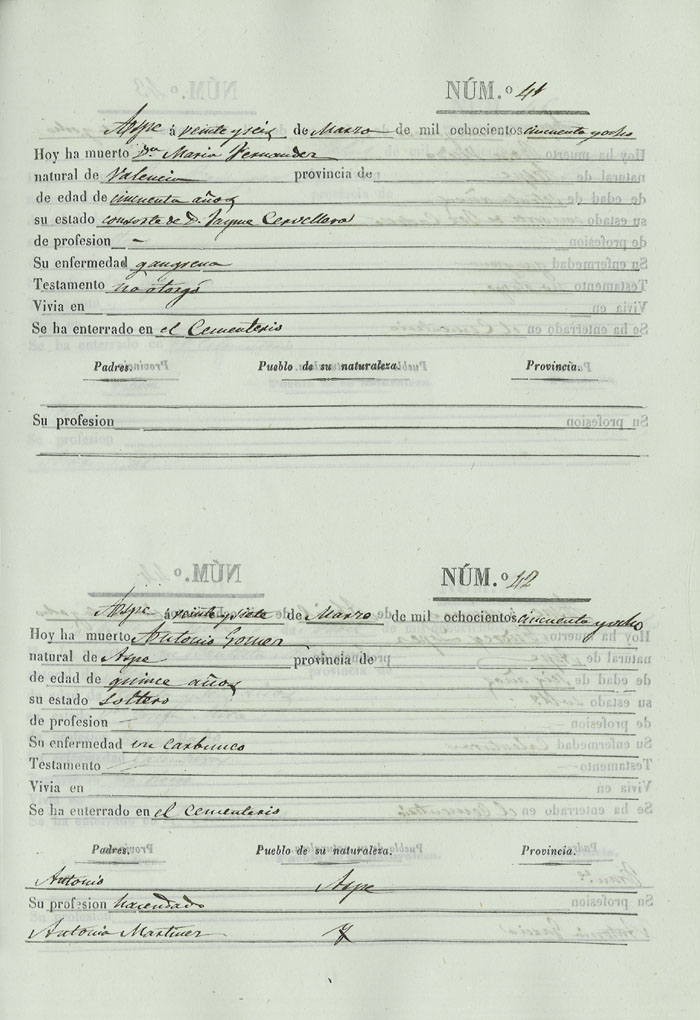 NÚM.º 41
Aspe á veinte y seis de Marzo de mil ochocientos cincuenta y ocho
Hoy ha muerto Dª Maria Fernandez
natural de Valencia provincia de
de edad de cincuenta años
su estado consorte de D. Jayme Cervellera
de profesion -
Su enfermedad gangrena
Testamento no otorgó
Vivia en
Se ha enterrado en el Cementerio
Padres. Pueblo de su naturaleza. Provincia.
Su profesion
NÚM.º 42
Aspe á veinte y siete de Marzo de mil ochocientos cincuenta y ocho
Hoy ha muerto Antonio Gomez
natural de Aspe provincia de
de edad de quince años
su estado soltero
de profesion -
Su enfermedad un carbunco
Testamento
Vivia en
Se ha enterrado en el cementerio
Padres. Pueblo de su naturaleza. Provincia.
Antonio Aspe
Su profesion hacendado
Antonia Martinez